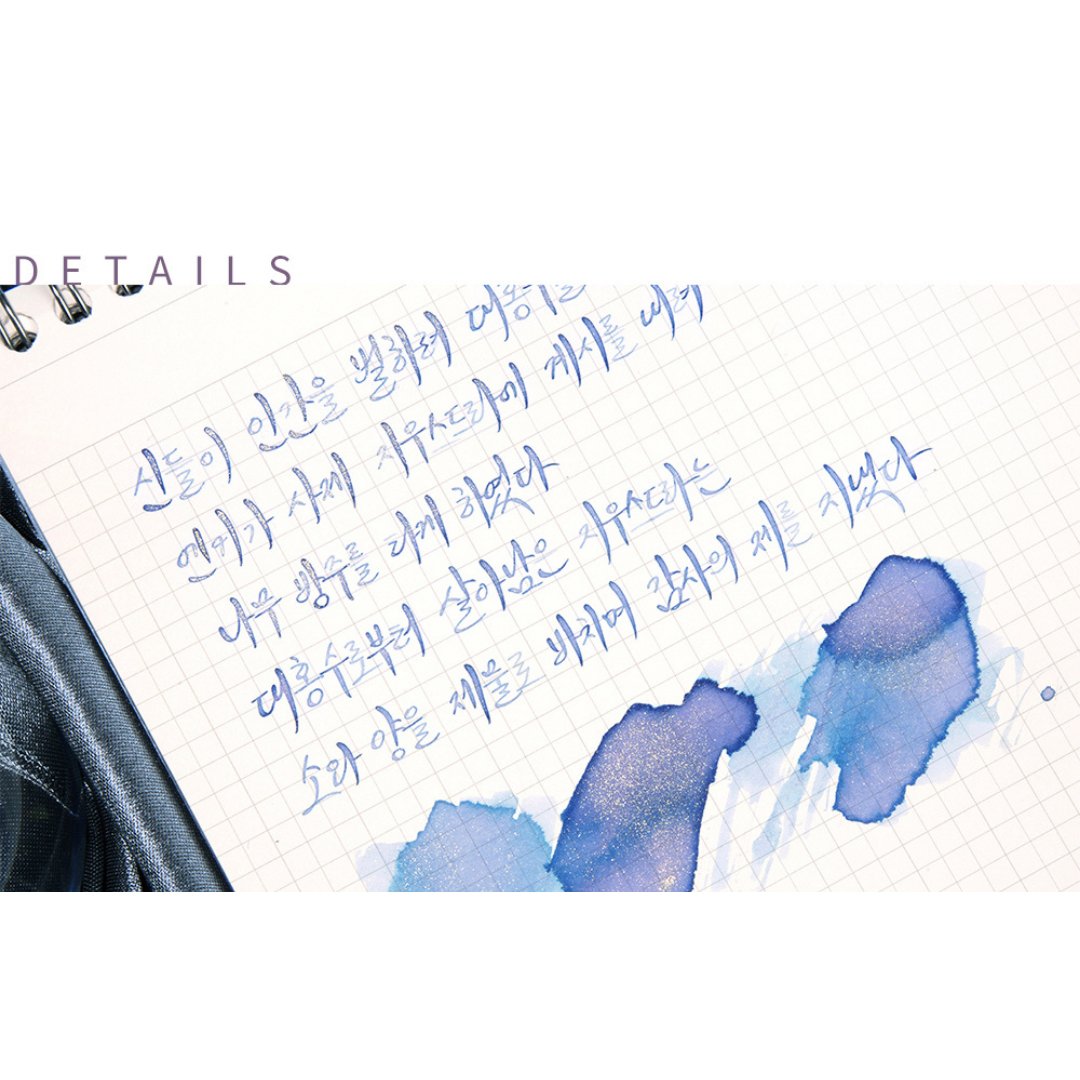 DETAILS
신들이 인간을 벌하려
엔키가 사제 지우스드라에 계시를 내려
나무 방주를 타게 하였다
대홍수로부터 살아남은 지우스드라는
소와 양을 제물로 바치며 감사의 제를 지냈다